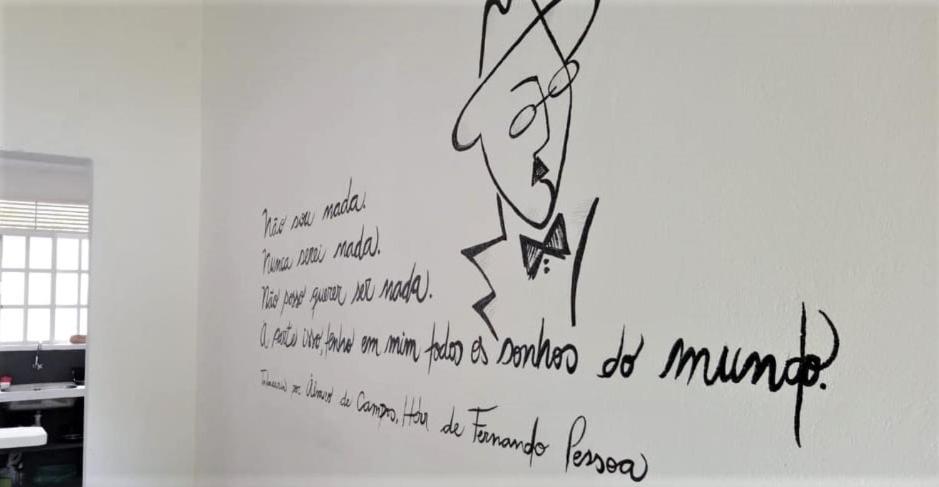 Não sou nada.
Nunca serei nada.
Não posso querer ser nada.
A parte isso, tenho em mim todos os sonhos do mundo.
Tabacaria por Álvaro de Campos, de Fernando Pessoa